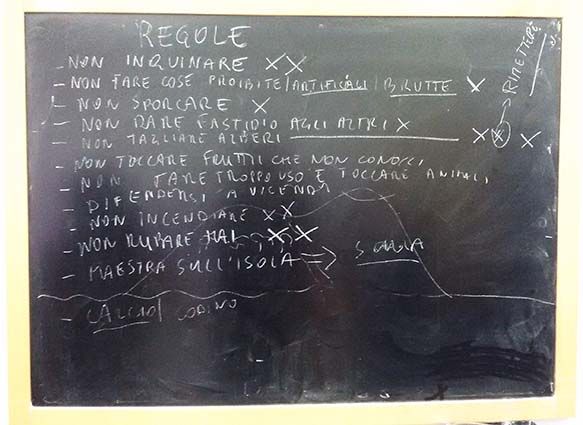 REGOLE
- NON INQUINARE XX
- NON FARE COSE PROIBITE/ARTIFICIALI/BRUTTE X
- NON SPORCARE X
- NON DARE FASTIDIO AGLI ALTRI X
- NON TAGLIARE ALBERI XX X
RIMETTERE
- NON TOCCARE FRUTTI CHE NON CONOSCI
- NON FARE TROPPO USO E TOCCARE ANIMALI
- DIFENDERSI A VICENDA
- NON INCENDIARE XX
- NON RUBARE MAI XX
- MAESTRA SULL'ISOLA => SCUOLA
- CALCIO/